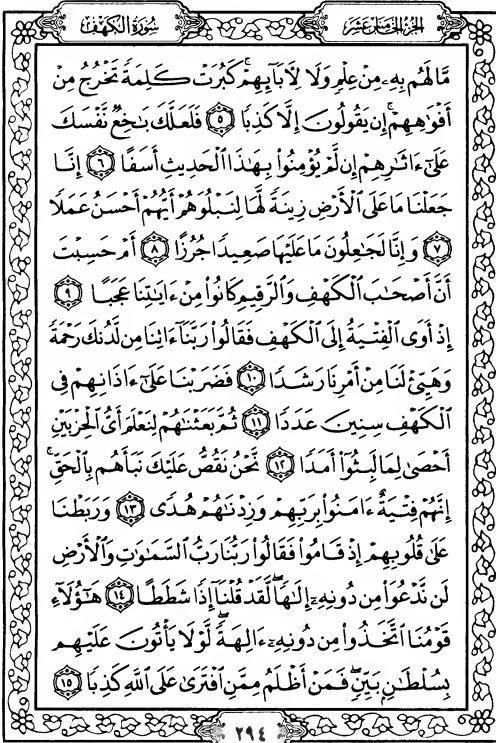 سُورَةُ الكَهْفِ
الجُزْءُ الخَامِسَ عَشَرَ
مَّا لَهُم بِهِۦ مِنْ عِلْمٍ وَلَا لِأٓبَآئِهِمْ ۚ كَبُرَتْ كَلِمَةً تَخْرُجُ مِنْ
أَفْوَٰهِهِمْ ۚ إِن يَقُولُونَ إِلَّا كَذِبًا ۝٥ فَلَعَلَّكَ بَٰخِعٌ نَّفْسَكَ
عَلَىٰٓ ءَاثَٰرِهِمْ إِن لَّمْ يُؤْمِنُوا۟ بِهَٰذَا ٱلْحَدِيثِ أَسَفًا ۝٦ إِنَّا
جَعَلْنَا مَا عَلَى ٱلْأَرْضِ زِينَةً لَّهَا لِنَبْلُوَهُمْ أَيُّهُمْ أَحْسَنُ عَمَلًا
۝٧ وَإِنَّا لَجَٰعِلُونَ مَا عَلَيْهَا صَعِيدًا جُرُزًا ۝٨ أَمْ حَسِبْتَ
أَنَّ أَصْحَٰبَ ٱلْكَهْفِ وَٱلرَّقِيمِ كَانُوا۟ مِنْ ءَايَٰتِنَا عَجَبًا ۝٩
إِذْ أَوَى ٱلْفِتْيَةُ إِلَى ٱلْكَهْفِ فَقَالُوا۟ رَبَّنَآ ءَاتِنَا مِن لَّدُنكَ رَحْمَةً
وَهَيِّئْ لَنَا مِنْ أَمْرِنَا رَشَدًا ۝١٠ فَضَرَبْنَا عَلَىٰٓ ءَاذَانِهِمْ فِى
ٱلْكَهْفِ سِنِينَ عَدَدًا ۝١١ ثُمَّ بَعَثْنَٰهُمْ لِنَعْلَمَ أَىُّ ٱلْحِزْبَيْنِ
أَحْصَىٰ لِمَا لَبِثُوٓا۟ أَمَدًا ۝١٢ نَّحْنُ نَقُصُّ عَلَيْكَ نَبَأَهُم بِٱلْحَقِّ ۚ
إِنَّهُمْ فِتْيَةٌ ءَامَنُوا۟ بِرَبِّهِمْ وَزِدْنَٰهُمْ هُدًى ۝١٣ وَرَبَطْنَا
عَلَىٰ قُلُوبِهِمْ إِذْ قَامُوا۟ فَقَالُوا۟ رَبُّنَا رَبُّ ٱلسَّمَٰوَٰتِ وَٱلْأَرْضِ
لَن نَّدْعُوَا۟ مِن دُونِهِۦٓ إِلَٰهًا ۖ لَّقَدْ قُلْنَآ إِذًا شَطَطًا ۝١٤ هَٰٓؤُلَآءِ
قَوْمُنَا ٱتَّخَذُوا۟ مِن دُونِهِۦٓ ءَالِهَةً ۖ لَّوْلَا يَأْتُونَ عَلَيْهِم
بِسُلْطَٰنٍۭ بَيِّنٍ ۖ فَمَنْ أَظْلَمُ مِمَّنِ ٱفْتَرَىٰ عَلَى ٱللَّهِ كَذِبًا ۝١٥
٢٩٤